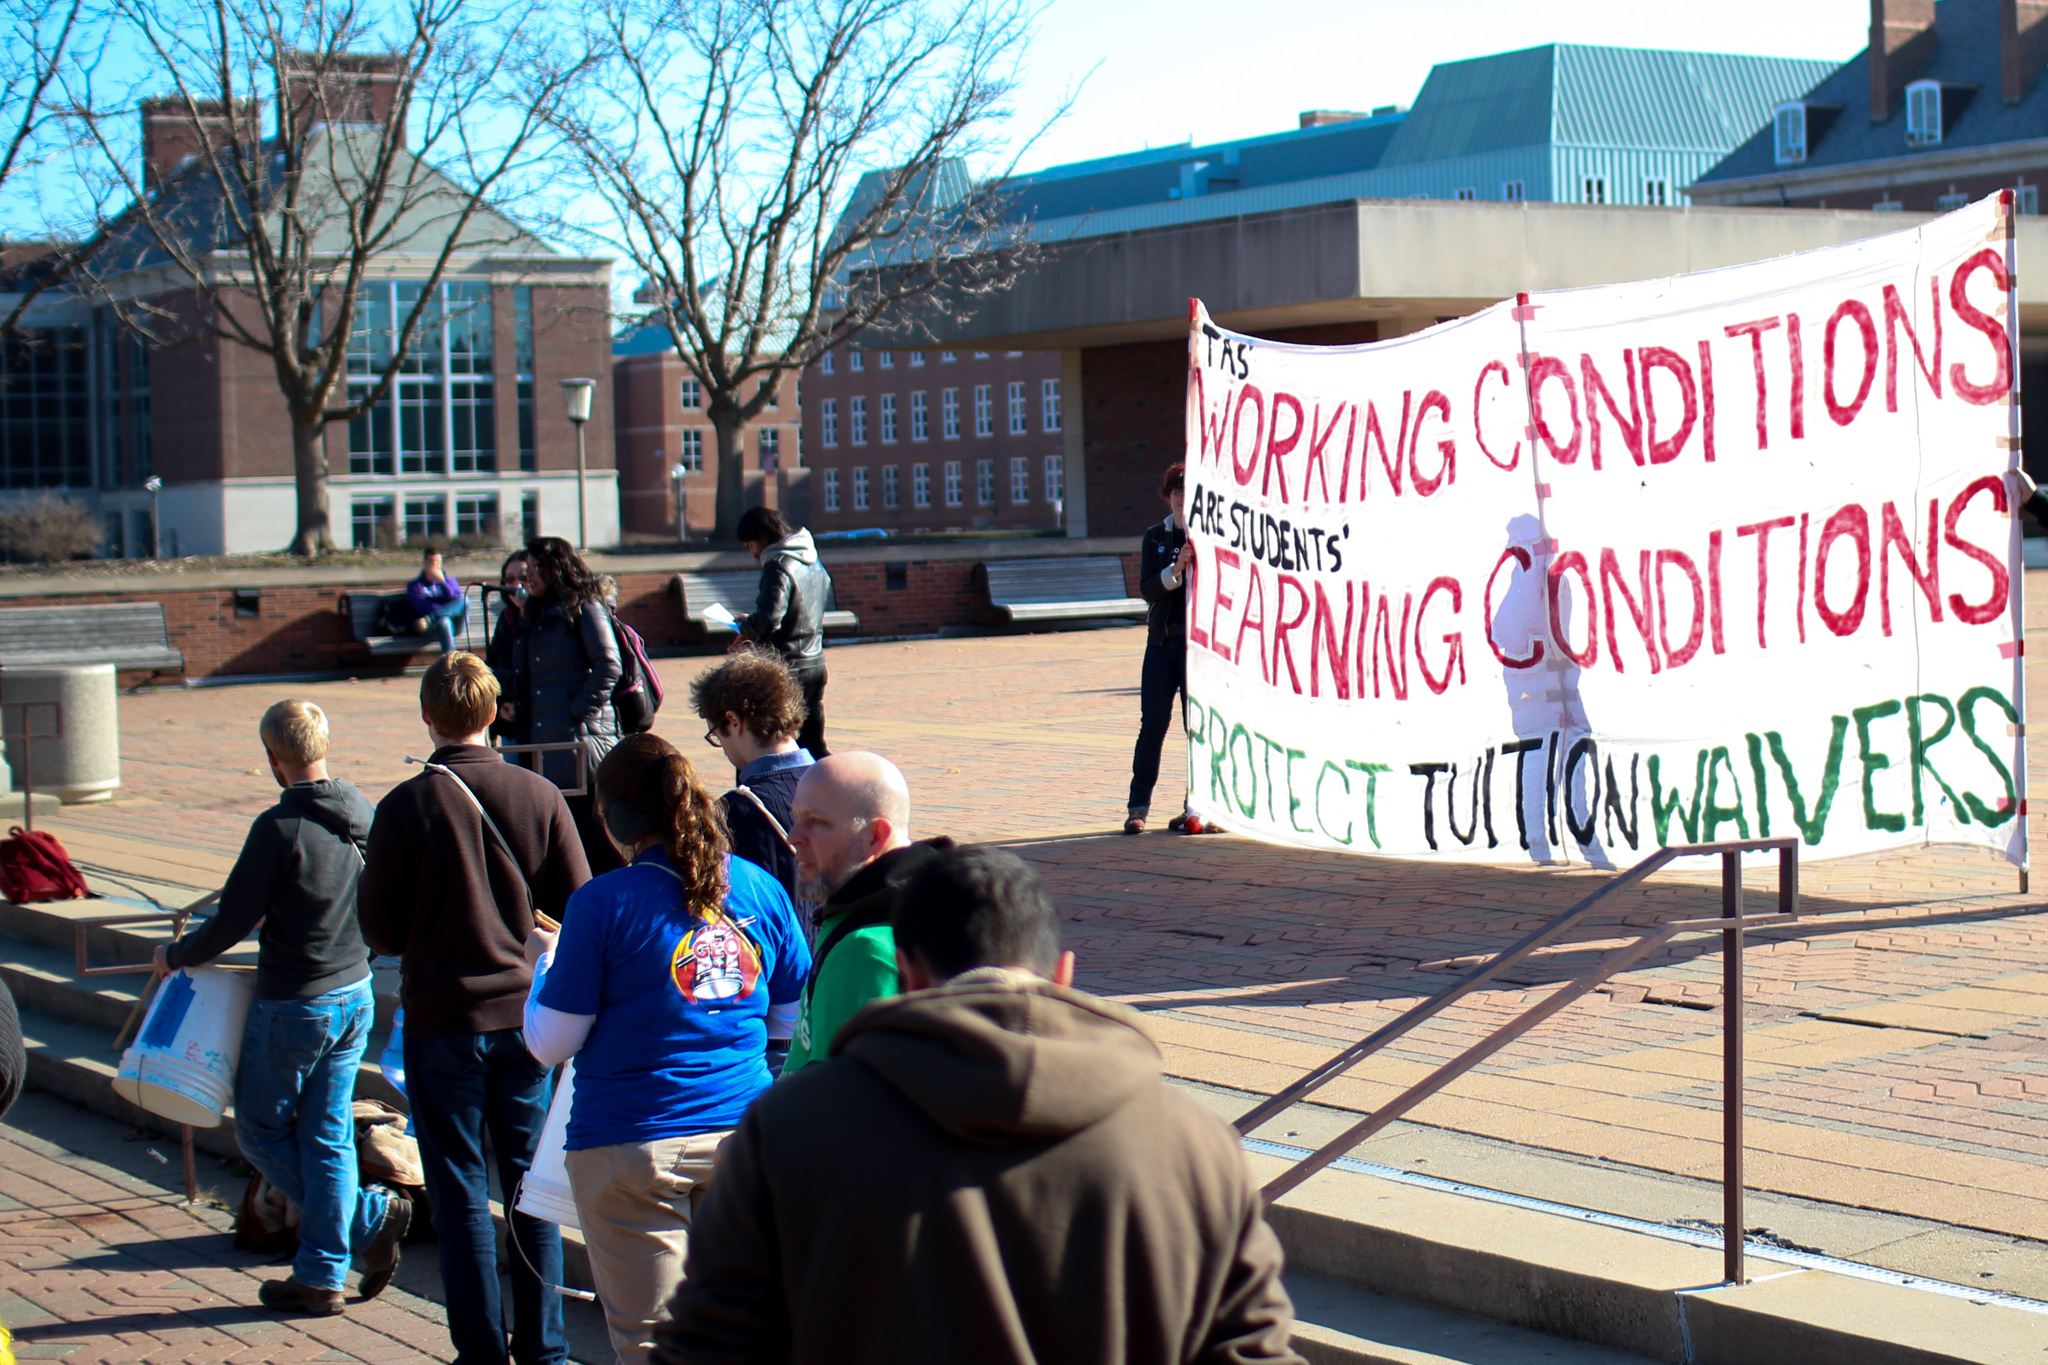 TAS'
WORKING CONDITIONS
ARE STUDENTS'
LEARNING CONDITIONS
PROTECT TUITION WAIVERS